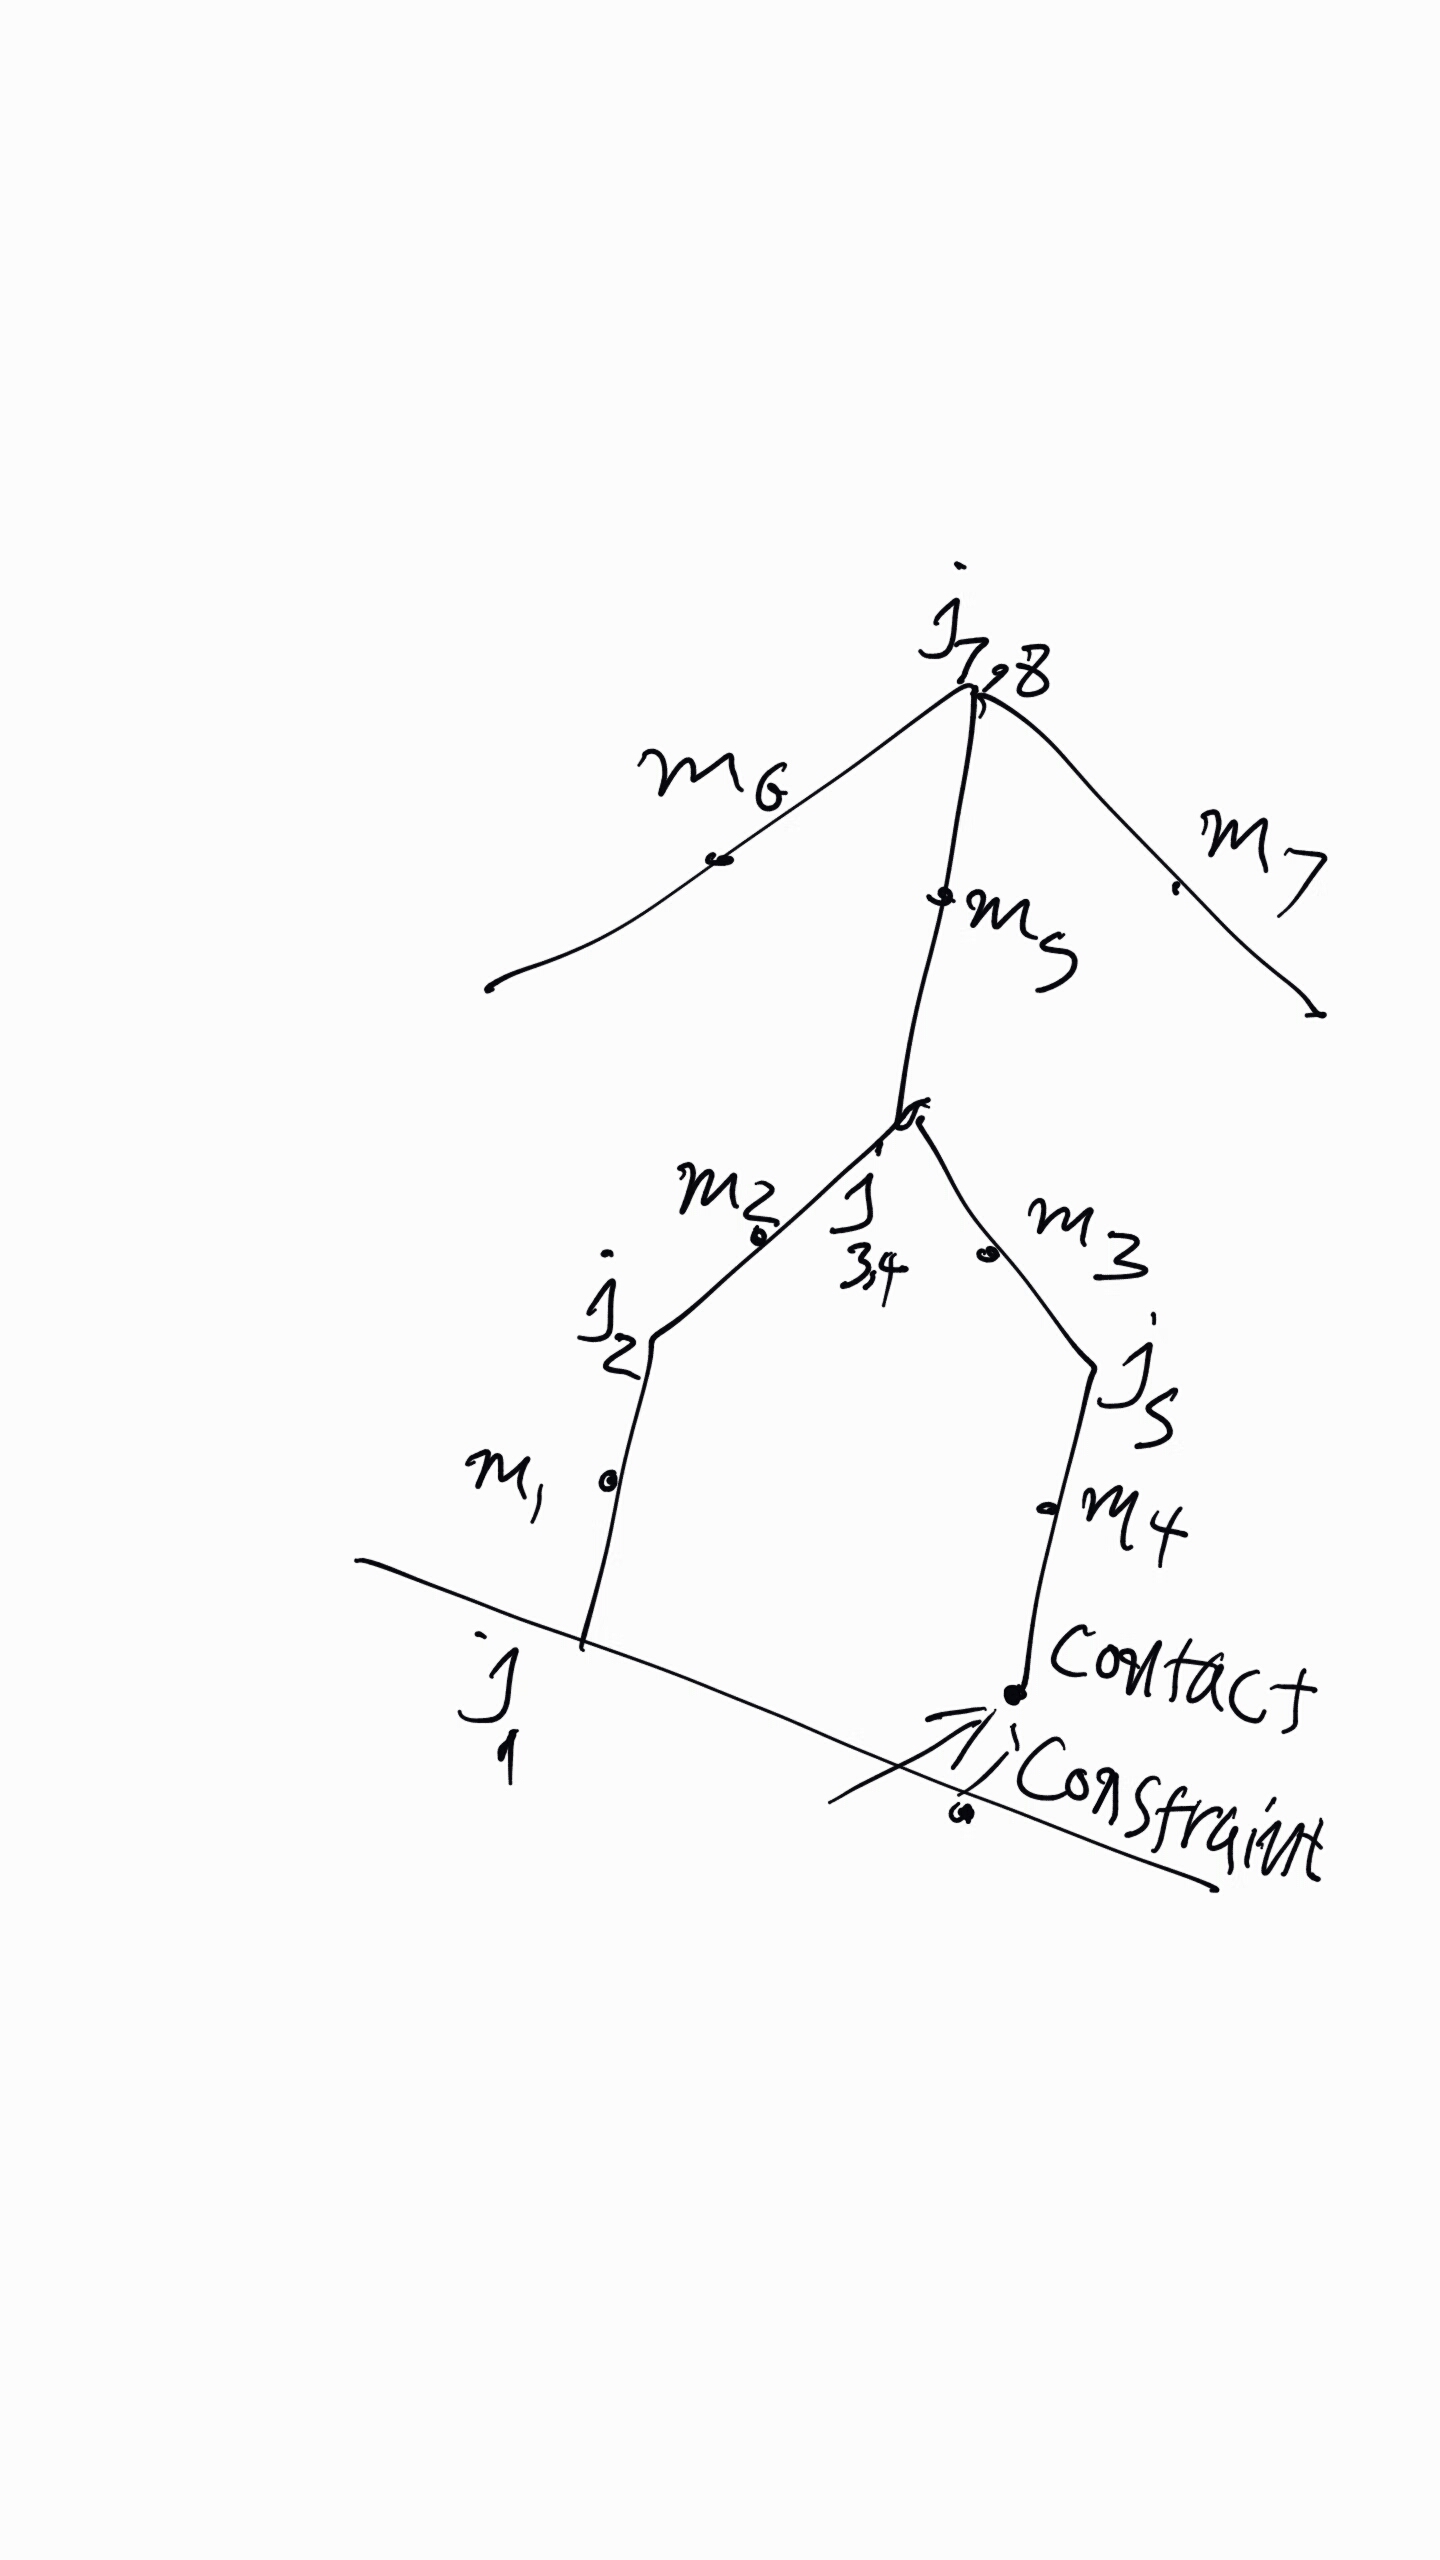 j7,8
m6
m7
m5
m2
j3,4
m3
j2
j5
m1
m4
j1
Contact
Constraint